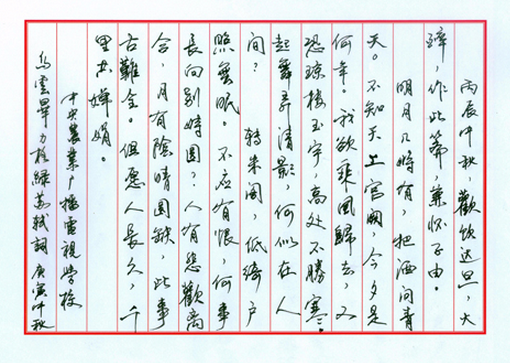 丙辰中秋，歡飲達旦，大
醉作此篇，兼怀子由。
明月几時有，把酒问青
天。不知天上宫闕，今夕是
何年。我欲乘風歸去，又
恐琼樓玉宇，高处不勝寒。
起舞弄清影，何似在人
间？　转朱阁，低绮户
照無眠。不应有恨，何事
長向别時圆？人有悲歡離
合，月有陰晴圆缺，此事
古難全。但愿人長久，千
里共婵娟。
中央農業广播電視学校
烏雲畢力格録苏軾詞 庚寅中秋